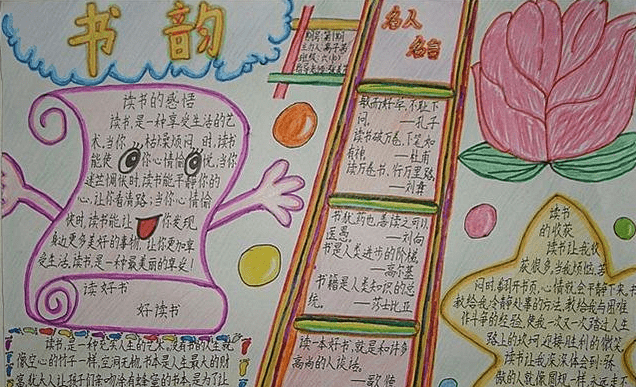 书韵
读书的感悟
读书,是一种享受生活的艺
术,当你枯燥烦闷,时,读书
能使你心情愉悦,当你
迷茫惆怅时,读书能平静你的
心,让你看清路;当你心情愉
快时,读书能让你发现
身边更多美好的事物,让你更加享
受生活,读书是一种最美丽的享受!
读好书
好读书
名人
名言
敏而好学,不耻下
问。——孔子
读书破万卷,下笔如
有神——杜甫
读万卷书,行万里路
——刘彝
书犹药也,善读之可以
医愚。——刘向
书是人类进步的阶梯。
——高尔基
书籍是人类知识的总
统。——莎士比亚
读一本好书,就是和许多
高尚的人谈话。
——歌德
读书
的收获
读书让我收
获很多,当我烦恼,苦
闷时,翻开书页,心情就会平静下来,书
教给我冷静处事的方法,教给我与困难
作斗争的经验,使我一次又一次踏过人生
路上的坎坷,迎接胜利的微笑
读书让我深深体会到:张
读书,是一种充实人生的艺术,没有书的人生就
像空心的竹子一样,空洞无物,书本是人生最大的财